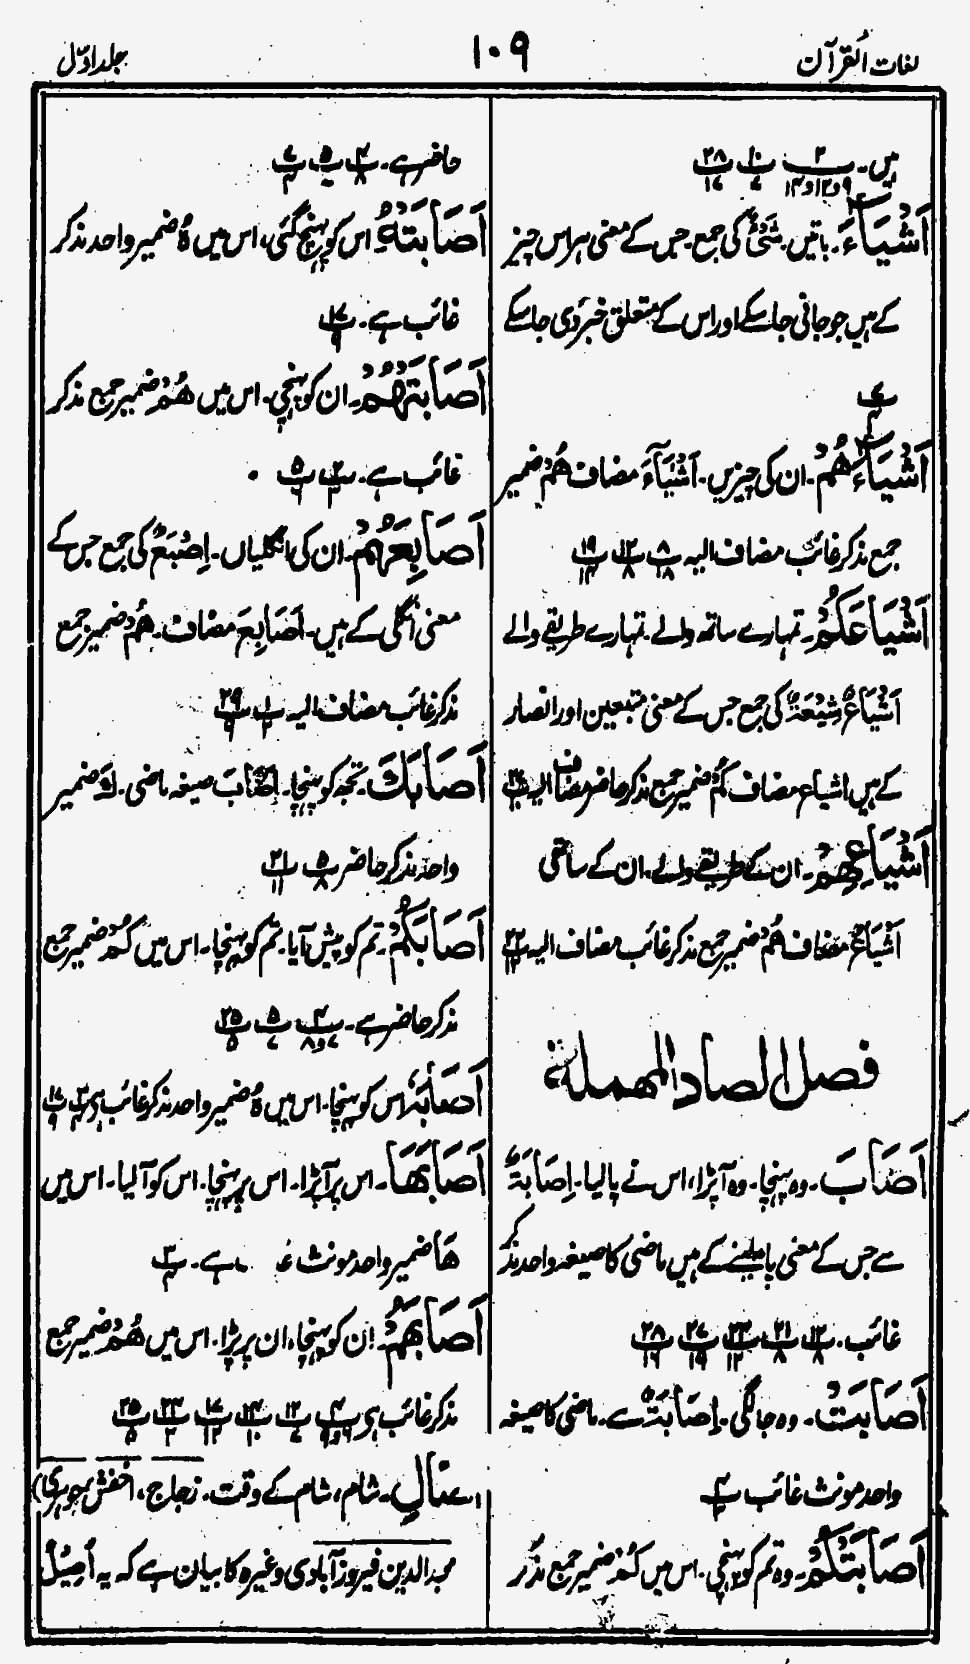 لغات القرآن
۱۰۹
جلد اوّل
ہیں۔ ۲/پ ۹و۱۲و۱۳ ۱۰/پ۷ ۲۸/پ۱۷
اَشْیَآءَ۔ باتیں۔ شَیْءٌ کی جمع۔ جس کے معنی ہر اس چیز
کے ہیں جو جانی جا سکے اور اس کے متعلق خبر دی جا سکے
پ۷
اَشْیَآءَهُمْ۔ ان کی چیزیں۔ اَشْیَآءَ مضاف هُمْ ضمیر
جمع مذکر غائب مضاف الیہ پ۸/۱۸ پ۱۲/۸ پ۱۹/۱۴
اَشْیَاعَکُمْ۔ تمہارے ساتھ والے۔ تمہارے طریقے والے
اَشْیَاعٌ شِیْعَةٌ کی جمع جس کے معنی متبعین اور انصار
کے ہیں اشیاع مضاف کُمْ ضمیر جمع مذکر حاضر مضاف الیہ
اَشْیَاعِهِمْ۔ ان کے طریقے والے۔ ان کے ساتھی
اَشْیَاعٌ مضاف هُمْ ضمیر جمع مذکر غائب مضاف الیہ پ۲۲/۱۲
فصل الصاد المهملة
اَصَابَ۔ وہ پہنچا۔ وہ آپڑا، اس نے پا لیا۔ اِصَابَةٌ
سے جس کے معنی پا لینے کے ہیں ماضی کا صیغہ واحد مذکر
غائب۔ پ۱۲/۸ پ۲۱/۸ پ۲۳/۱۲ پ۲۷/۱۹ پ۲۸/۱۶
اَصَابَتْ۔ وہ جا لگی۔ اِصَابَةٌ سے۔ ماضی کا صیغہ
واحد مونث غائب پ۴
اَصَابَتْکُمْ۔ وہ تم کو پہنچی۔ اس میں کُمْ ضمیر جمع مذکر
حاضر ہے۔ پ۴/۸ پ۵/۷ پ۷/۴
اَصَابَتْهُ۔ اس کو پہنچ گئی، اس میں هٗ ضمیر واحد مذکر
غائب ہے۔ پ۱۷/۹
اَصَابَتْهُمْ۔ ان کو پہنچی۔ اس میں هُمْ ضمیر جمع مذکر
غائب ہے۔ پ۲/۳ پ۵/۶
اَصَابِعَهُمْ۔ ان کی انگلیاں۔ اِصْبَعٌ کی جمع جس کے
معنی انگلی کے ہیں۔ اَصَابِعَ مضاف۔ هُمْ ضمیر جمع
مذکر غائب مضاف الیہ پ۱/۲ پ۲۹/۹
اَصَابَكَ۔ تجھ کو پہنچا۔ اَصَابَ صیغہ ماضی۔ كَ ضمیر
واحد مذکر حاضر پ۵/۸ پ۲۱/۱۱
اَصَابَکُمْ۔ تم کو پیش آیا۔ تم کو پہنچا۔ اس میں کُمْ ضمیر جمع
مذکر حاضر ہے۔ پ۴/۷و۸ پ۵/۷ پ۲۵/۵
اَصَابَهٗ۔ اس کو پہنچا۔ اس میں هٗ ضمیر واحد مذکر غائب ہے پ۳/۴ پ۱۷/۹
اَصَابَهَا۔ اس پر آپڑا۔ اس پر پہنچا۔ اس کو آلیا۔ اس میں
هَا ضمیر واحد مونث ہے۔ پ۳
اَصَابَهُمْ۔ ان کو پہنچا، ان پر پڑا۔ اس میں هُمْ ضمیر جمع
مذکر غائب ہے پ۴/۶و۹ پ۱۲/۷ پ۱۴/۱۰ پ۱۷/۱۲ پ۲۳/۲ پ۲۵/۵
شام، شام کے وقت۔ زجاج، اخفش جوہری)
مجد الدین فیروز آبادی وغیرہ کا بیان ہے کہ یہ اَصِیْلٌ